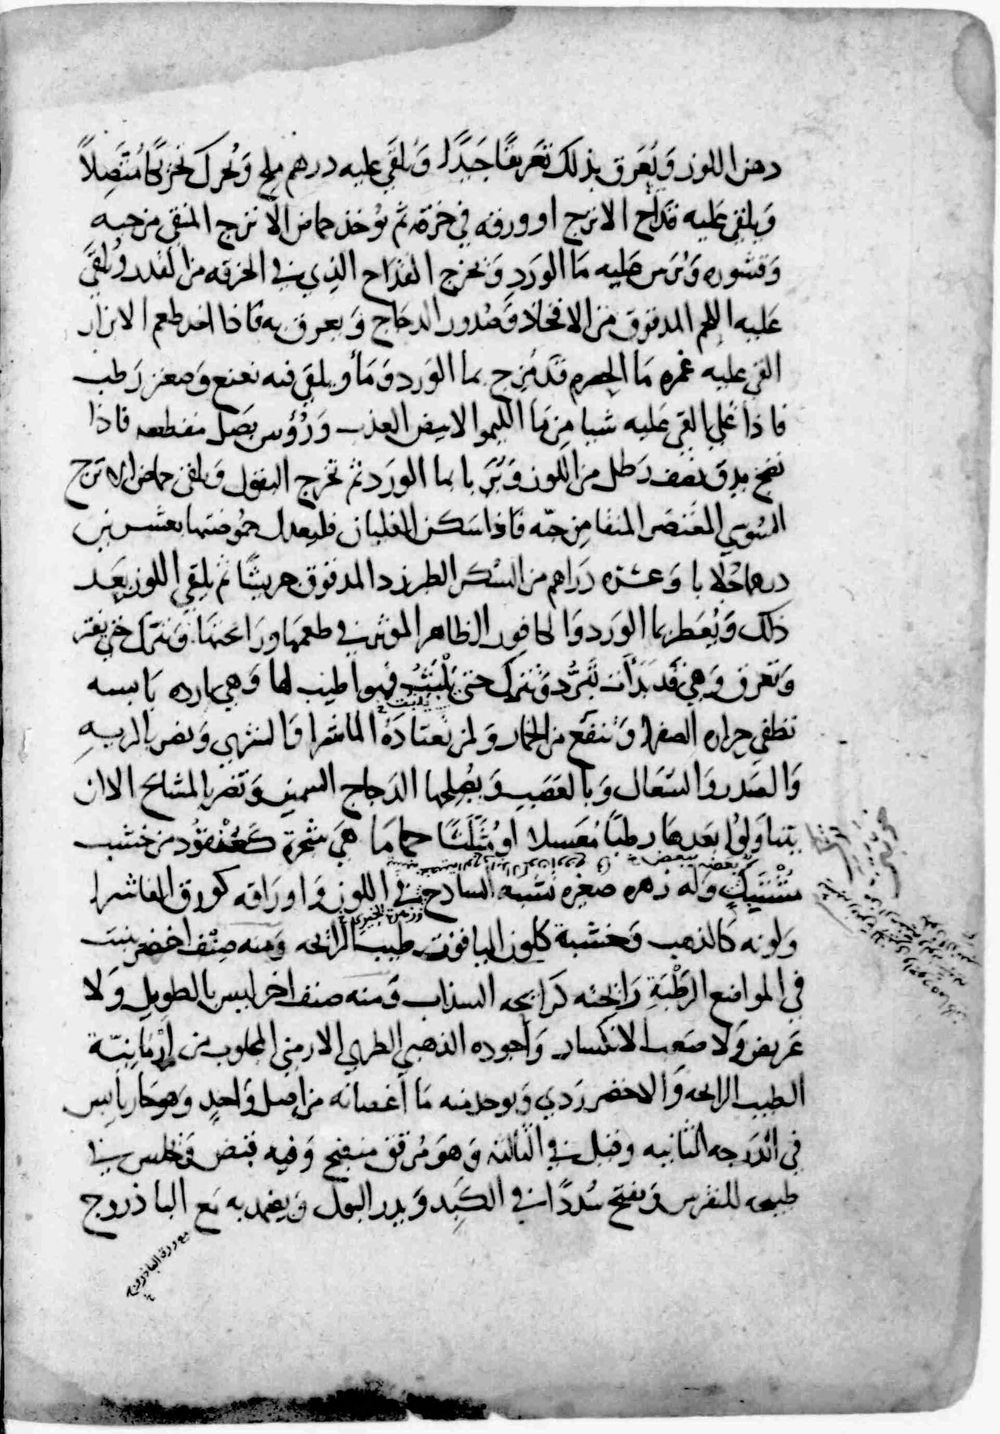 دهن اللوز وَيُعَرق بذلك تَعرِيقًا جَيّدًا وَيُلقَى عليه درهم ملح وَيُحرك تحريكًا مُتَّصِلاً
وَيلقى عَليه قداح الاترج او ورقه في خرقة ثم يؤخذ حماض الاترج المنقى من حبه
وقشوره وَيُمرس عليه مَا الوَردِ وَيخرج القداح الذي في الخرقه من القدر ويُلقَى
عَليه اللحم المدقوق من الافخاذ وَصُدور الدجاج وَيعرق به فاذا اخد طعم الابزار
القي عليه غمره مَا الحِصرم قد مُزج بما الوَرد وَمَا ويلقى فيه نعنع وَصعتر رَطب
فاذا غلي القي عَليه شيا مِن مَا الليموا الابيض العذب وَرُؤس بَصَل مقطعه فاذا
نضج يدق نصف رَطل من اللوز وَيُرَبا بما الورد ثم تخرج البقول وَيلقى حماض الاترج
السُوسي المعتصر المنقا مِن حبّه فاذا سَكن الغليان فليعدل حموضتها بعشرين
درهما جلابا وَعشره دَراهم من السُكر الطبرزد المدقوق جريشًا ثم يلقي اللوز بَعد
ذلك وَيُعطر بما الوَرد وَالكافور الظاهر الموثر في طعمهَا ورَائحتهَا وَتترك حتى يفتر
وَتعرق وَهي قد بَدَأت تبرُد وَتترك حتى تَلْبَثُ فهوا طيب لها وَهي بارده يَابسه
تطفي حراره الصفرا وَتنفع من الخمار وَلمن يعتادَهُ الماشرا وَالشرى وَتضر بالريه
وَالصَدر وَالسّعَال وَبالعَصَب وَيُصلِحها الدَجاج السمين وَتضر بالمشايخ الا ان
يتناوَلوُا بَعدهَا رطبًا مُعَسلا او مُثَلَثًا حمامَا هِيَ شجرة كَعُنْقُود من خشب
مُشْتَبِكٍ وَله زهره صغيره تشبه الساذج في اللون وَاوراقه كورق الفاشرا
بعضه ببعض
وَلونه كالذهب وَخشبة كلون الياقوت طيب الرايحه وَمنه صِنف اخضر ينبت
في المواضع الرَطْبَةِ رَايحته كرَايحه السذاب وَمنه صنف اخر ليس بالطويل وَلا
عَريض وَلا صَعب الانكسار وَاجوده الذهبي الطري الارمني المجلوب من اِرْمانِيّة
الطيب الرايحه وَالاخضر رَدي وَيوخد منه مَا اغصانه من اصل وَاحدٍ وَهوَ حار يابس
في الدَرَجه الثانيه وقيل في الثالثه وَهوَ مُرَقق منضج وَفيه قبض وَيجلس في
طبيخه للنقرس وَيفتح سُددًا في الكَبد وَيدر البول وَيضمد به مَع الباذروج